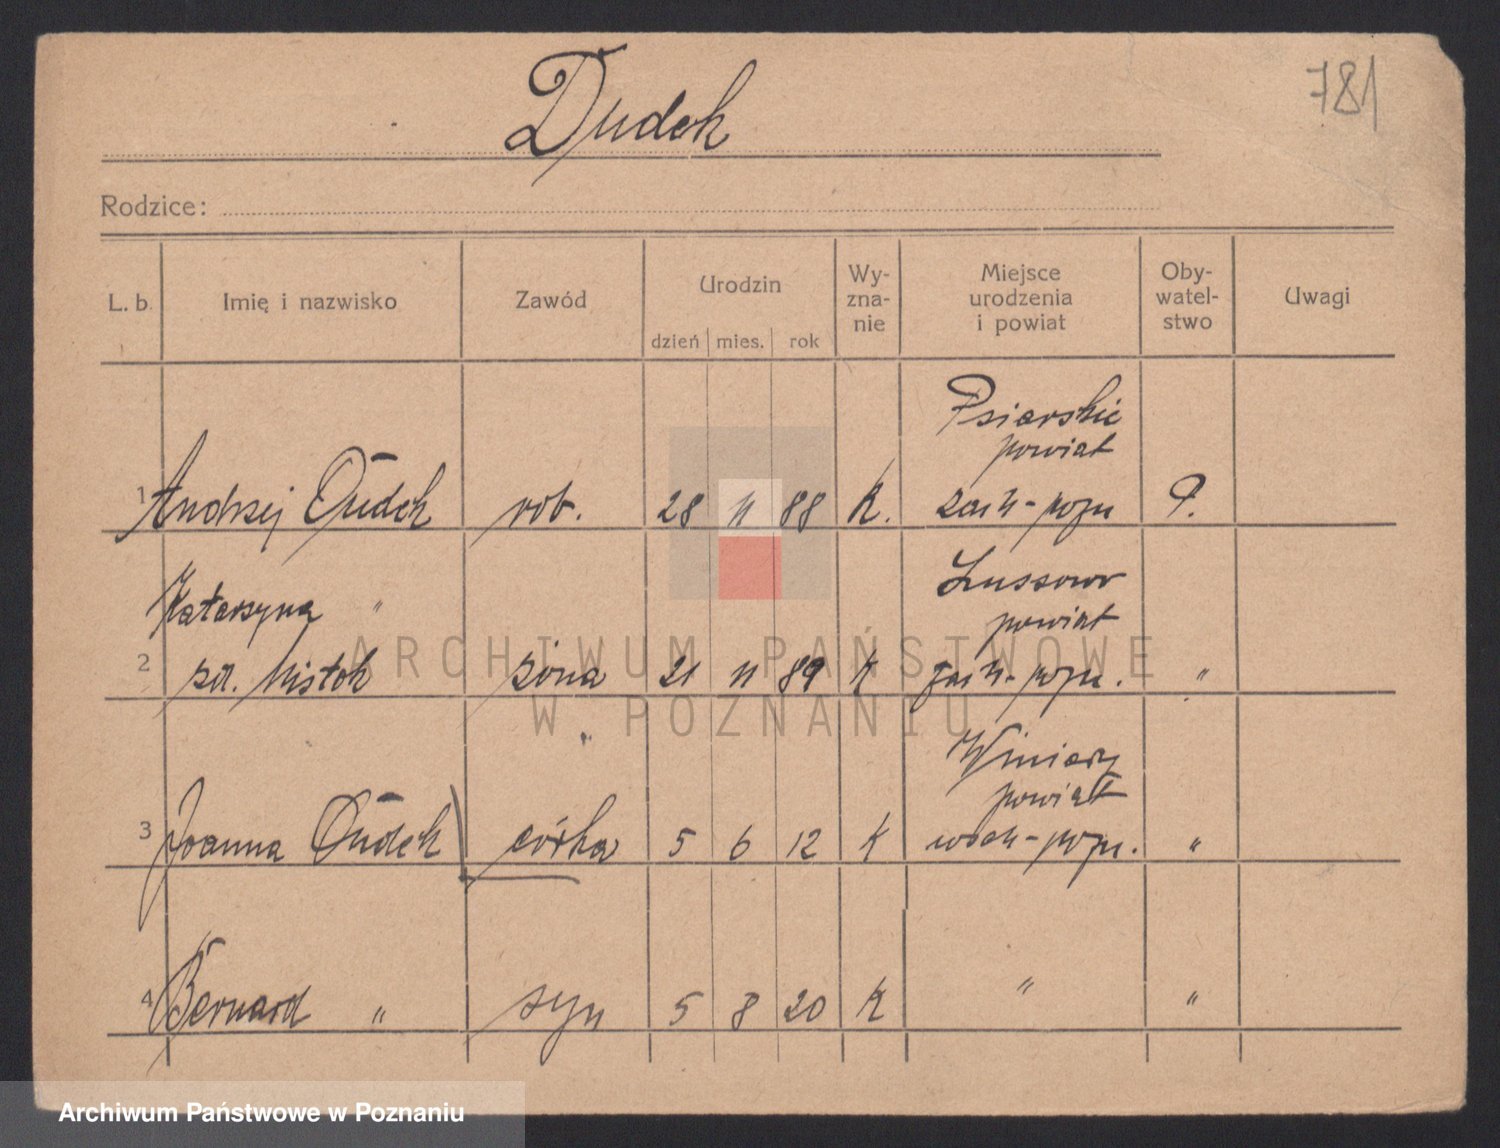 781
Dudek
Rodzice:
L. b. Imię i nazwisko Zawód Urodzin dzień mies. rok Wy-zna-nie Miejsce urodzenia i powiat Oby-watel-stwo Uwagi
Psarskie
powiat
1 Andrzej Dudek rob. 28 11 88 K. zach-pozn P.
Katarzyna " Lussowo
powiat
2 zd. Mistok żona 21 11 89 K zach-pozn. "
" Winiary
powiat
3 Joanna Dudek córka 5 6 12 K wsch-pozn. "
4 Bernard " syn 5 8 20 K " "
ARCHIWUM PAŃSTWOWE
W POZNANIU
Archiwum Państwowe w Poznaniu